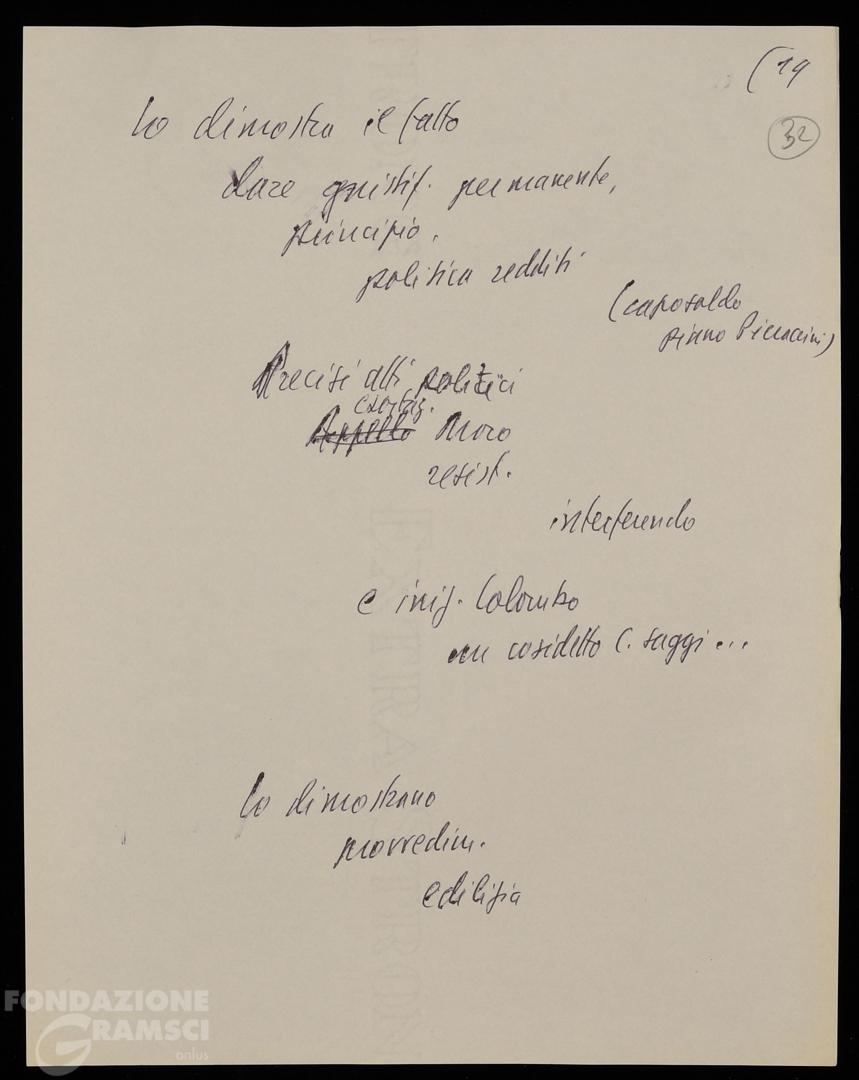 (19
32
lo dimostra il fatto
dare giustif. permanente,
principio,
politica redditi
(caposaldo
piano Pieraccini)
Precisi atti politici
esortaz.
Appello Moro
resist.
interferendo
e iniz. Colombo
un cosidetto C. saggi...
lo dimostrano
provvedim.
edilizia
FONDAZIONE
GRAMSCI
onlus